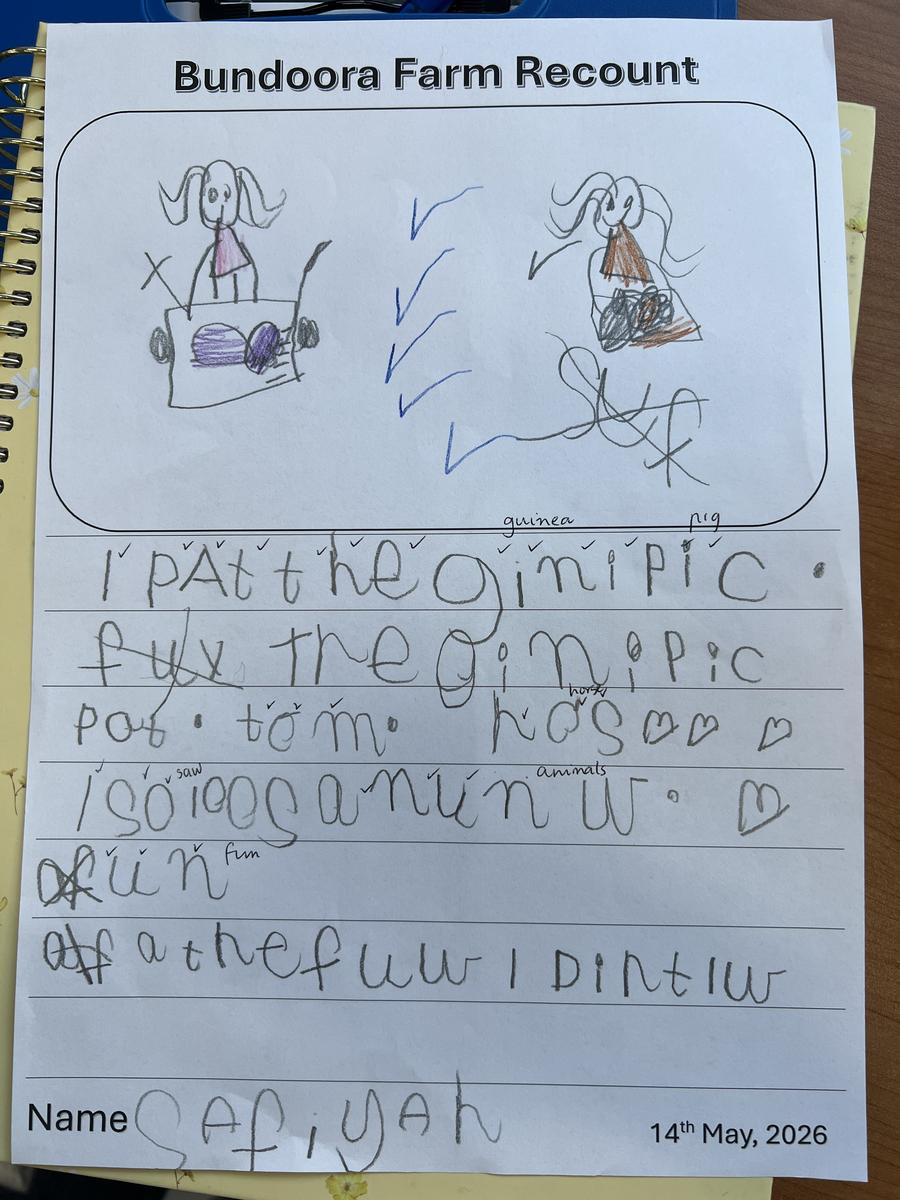 Bundoora Farm Recount
guinea pig
I pAt the ginipic .
fux The ginipic
horse
pot . tom . hos
saw animals
I so loos anun w .
fun
fun
a the fuw I Dint lw
Name SAfiyAh
14th May, 2026